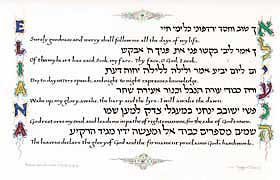 ELIANA
אך טוב וחסד ירדפוני כל ימי חיי
Surely goodness and mercy shall follow me all the days of my life.
לך אמר לבי בקשו פני את פניך ה' אבקש
Of thee my heart has said, Seek my face. Thy face, O God, I seek.
יום ליום יביע אמר ולילה ללילה יחוה דעת
Day to day utters speech, and night to night expresses knowledge.
עורה כבודי עורה הנבל וכנור אעירה שחר
Wake up, my glory, awake, the harp and the lyre. I will awake the dawn.
נפשי ישובב ינחני במעגלי צדק למען שמו
God restores my soul, and leads me in paths of righteousness for the sake of God's name.
השמים מספרים כבוד אל ומעשה ידיו מגיד הרקיע
The heavens declare the glory of God and the firmament proclaims God's handiwork.